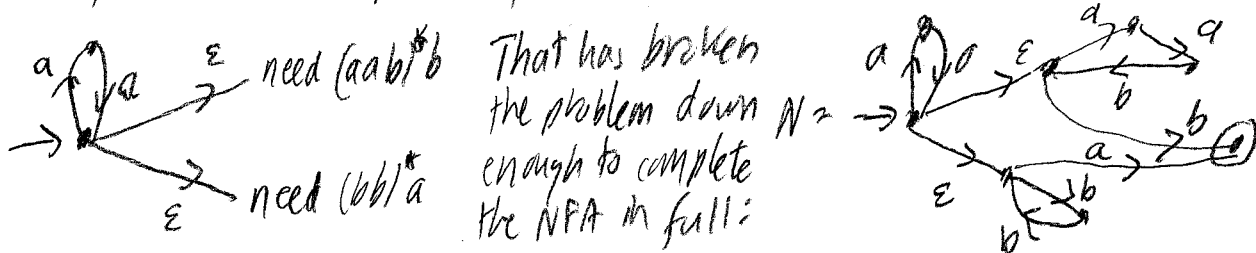 a a ε need (aab)*b
ε need (bb)*a
That has broken
the problem down
enough to complete
the NFA in full:
N =
a a ε a a b
b
ε a b b